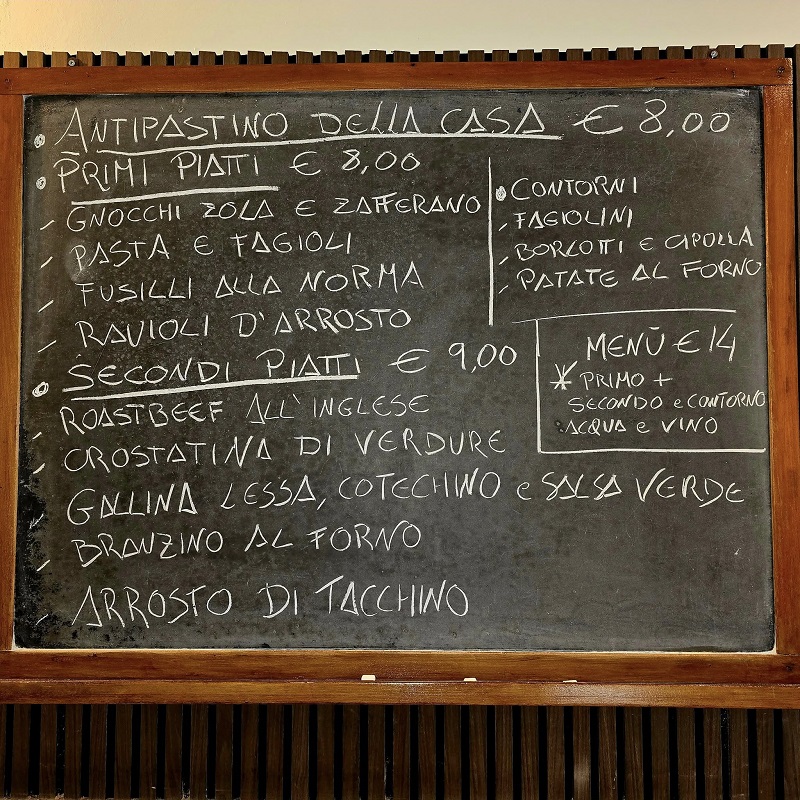 ANTIPASTINO DELLA CASA € 8,00
PRIMI PIATTI € 8,00
GNOCCHI ZOLA E ZAFFERANO
PASTA E FAGIOLI
FUSILLI ALLA NORMA
RAVIOLI D'ARROSTO
SECONDI PIATTI € 9,00
ROASTBEEF ALL'INGLESE
CROSTATINA DI VERDURE
GALLINA LESSA, COTECHINO e SALSA VERDE
BRANZINO AL FORNO
ARROSTO DI TACCHINO
CONTORNI
FAGIOLINI
BORLOTTI E CIPOLLA
PATATE AL FORNO
MENÙ € 14
* PRIMO +
SECONDO e CONTORNO
ACQUA e VINO